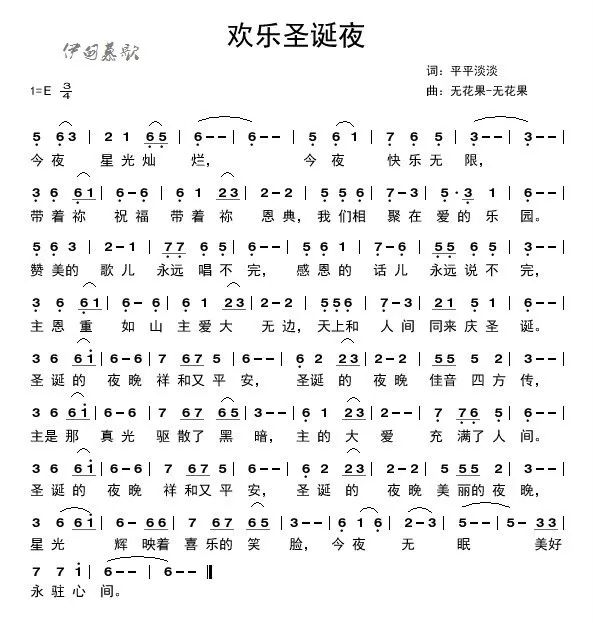 欢乐圣诞夜
伊甸慕歌
词：平平淡淡
1=E 3/4
曲：无花果-无花果
5 63 | 2 1 65 | 6-- | 6-- | 5 6 1 | 7 6 5 | 3-- | 3-- |
今夜 星光灿 烂， 今夜 快乐无限，
3 6 61 | 6-6 | 6 1 23 | 2-2 | 5 5 6 | 7-3 | 5·3 1 | 6-- |
带着祢 祝福 带着祢 恩典，我们相 聚在 爱的乐 园。
5 6 3 | 2-1 | 77 6 5 | 6-- | 5 6 1 | 7-6 | 55 6 5 | 3-- |
赞美的 歌儿 永远唱不 完， 感恩的 话儿 永远说不 完，
3 6 61 | 6-6 | 6 1 23 | 2-2 | 556 | 7-3 | 21 5 1 | 6-- |
主恩重 如山 主爱大 无边，天上和 人间 同来庆圣 诞。
3 6 61 | 6-6 | 7 67 5 | 6-- | 6 2 23 | 2-2 | 55 5 4 | 3-- |
圣诞的 夜晚 祥和又平 安， 圣诞的 夜晚 佳音四方 传，
3 61 | 6-6 | 7 67 65 | 3-- | 6 1 23 | 2-2 | 7 76 5 | 6-- |
主是那 真光 驱散了黑 暗，主的大 爱 充 满了人 间。
3 6 61 | 6-6 | 7 67 5 | 6-- | 6 2 23 | 2-2 | 5 55 2 | 3-- |
圣诞的 夜晚 祥和又平 安，圣诞的 夜晚 美丽的夜 晚，
3 6 61 | 6-66 | 67 65 | 3-- | 6 1 6 | 2-- | 5-- | 5-33 |
星光 辉 映着 喜乐的笑 脸，今夜 无 眠 美好
7 7 1 | 6-- | 6-- ‖
永驻心 间。